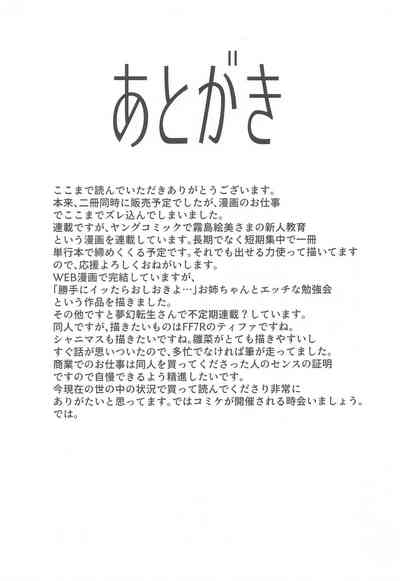 あとがき
ここまで読んでいただきありがとうございます。
本来、二冊同時に販売予定でしたが、漫画のお仕事
でここまでズレ込んでしまいました。
連載ですが、ヤングコミックで霧島絵美さまの新人教育
という漫画を連載しています。長期でなく短期集中で一冊
単行本で締めくくる予定です。それでも出せる力使って描いてます
ので、応援よろしくおねがいします。
WEB漫画で完結していますが、
「勝手にイッたらおしおきよ…」お姉ちゃんとエッチな勉強会
という作品を描きました。
その他ですと夢幻転生さんで不定期連載？しています。
同人ですが、描きたいものはFF7Rのティファですね。
シャニマスも描きたいですね。雛菜がとても描きやすいし
すぐ話が思いついたので、多忙でなければ筆が走ってました。
商業でのお仕事は同人を買ってくださった人のセンスの証明
ですので自慢できるよう精進したいです。
今現在の世の中の状況で買って読んでくださり非常に
ありがたいと思ってます。ではコミケが開催される時会いましょう。
では。